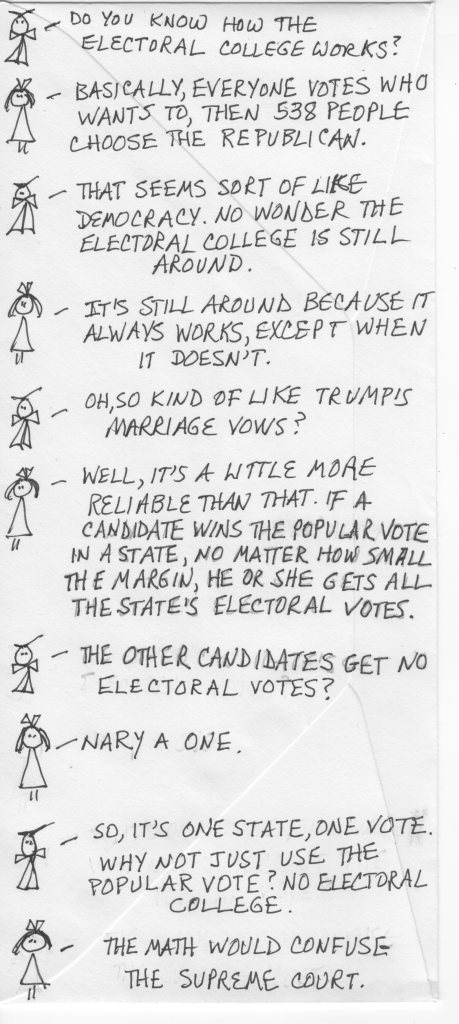 DO YOU KNOW HOW THE
ELECTORAL COLLEGE WORKS?
BASICALLY, EVERYONE VOTES WHO
WANTS TO, THEN 538 PEOPLE
CHOOSE THE REPUBLICAN.
THAT SEEMS SORT OF LIKE
DEMOCRACY. NO WONDER THE
ELECTORAL COLLEGE IS STILL
AROUND.
IT'S STILL AROUND BECAUSE IT
ALWAYS WORKS, EXCEPT WHEN
IT DOESN'T.
OH, SO KIND OF LIKE TRUMP'S
MARRIAGE VOWS?
WELL, IT'S A LITTLE MORE
RELIABLE THAN THAT. IF A
CANDIDATE WINS THE POPULAR VOTE
IN A STATE, NO MATTER HOW SMALL
THE MARGIN, HE OR SHE GETS ALL
THE STATE'S ELECTORAL VOTES.
THE OTHER CANDIDATES GET NO
ELECTORAL VOTES?
NARY A ONE.
SO, IT'S ONE STATE, ONE VOTE.
WHY NOT JUST USE THE
POPULAR VOTE? NO ELECTORAL
COLLEGE.
THE MATH WOULD CONFUSE
THE SUPREME COURT.